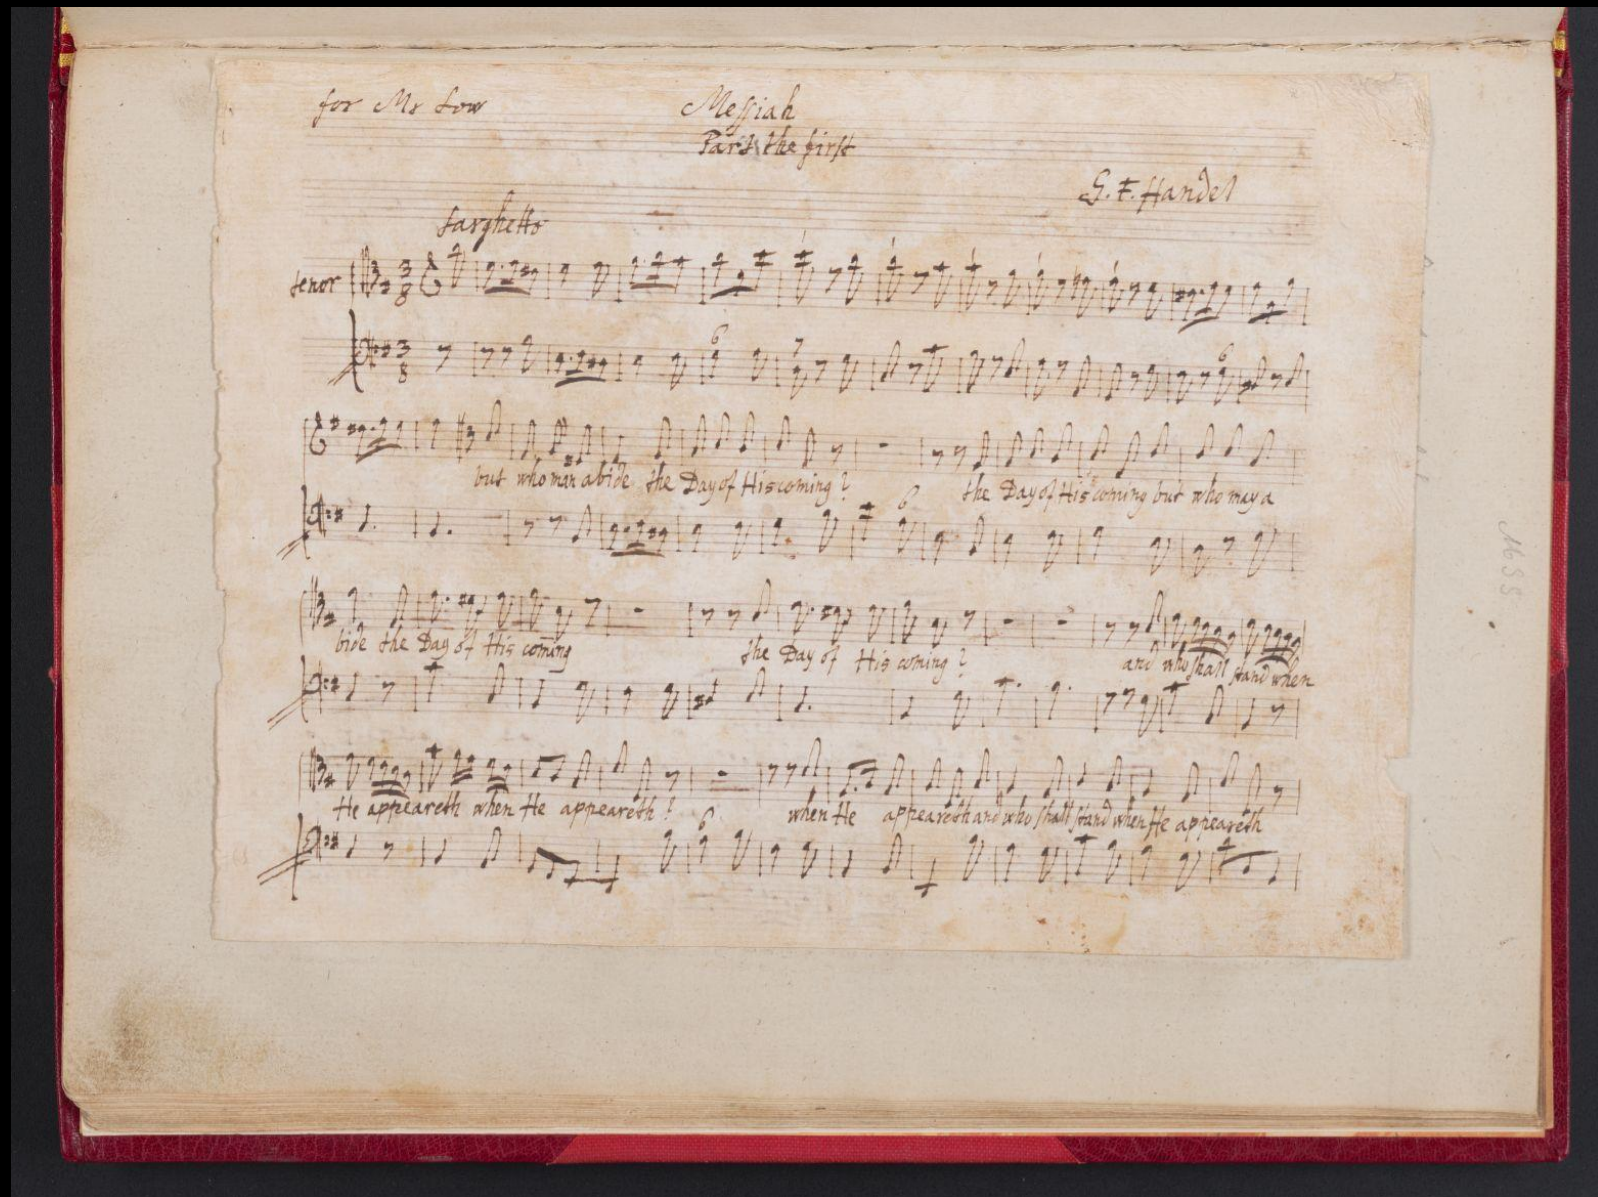 for Mr Low
Messiah
Part the first
G. F. Handel
Larghetto
tenor 3 8
6 7
3 8 6
but who may abide the Day of His coming? the Day of His coming but who may a
6
bide the Day of His coming the Day of His coming? and who shall stand when
He appeareth when He appeareth? when He appeareth and who shall stand when He appeareth
6
1655